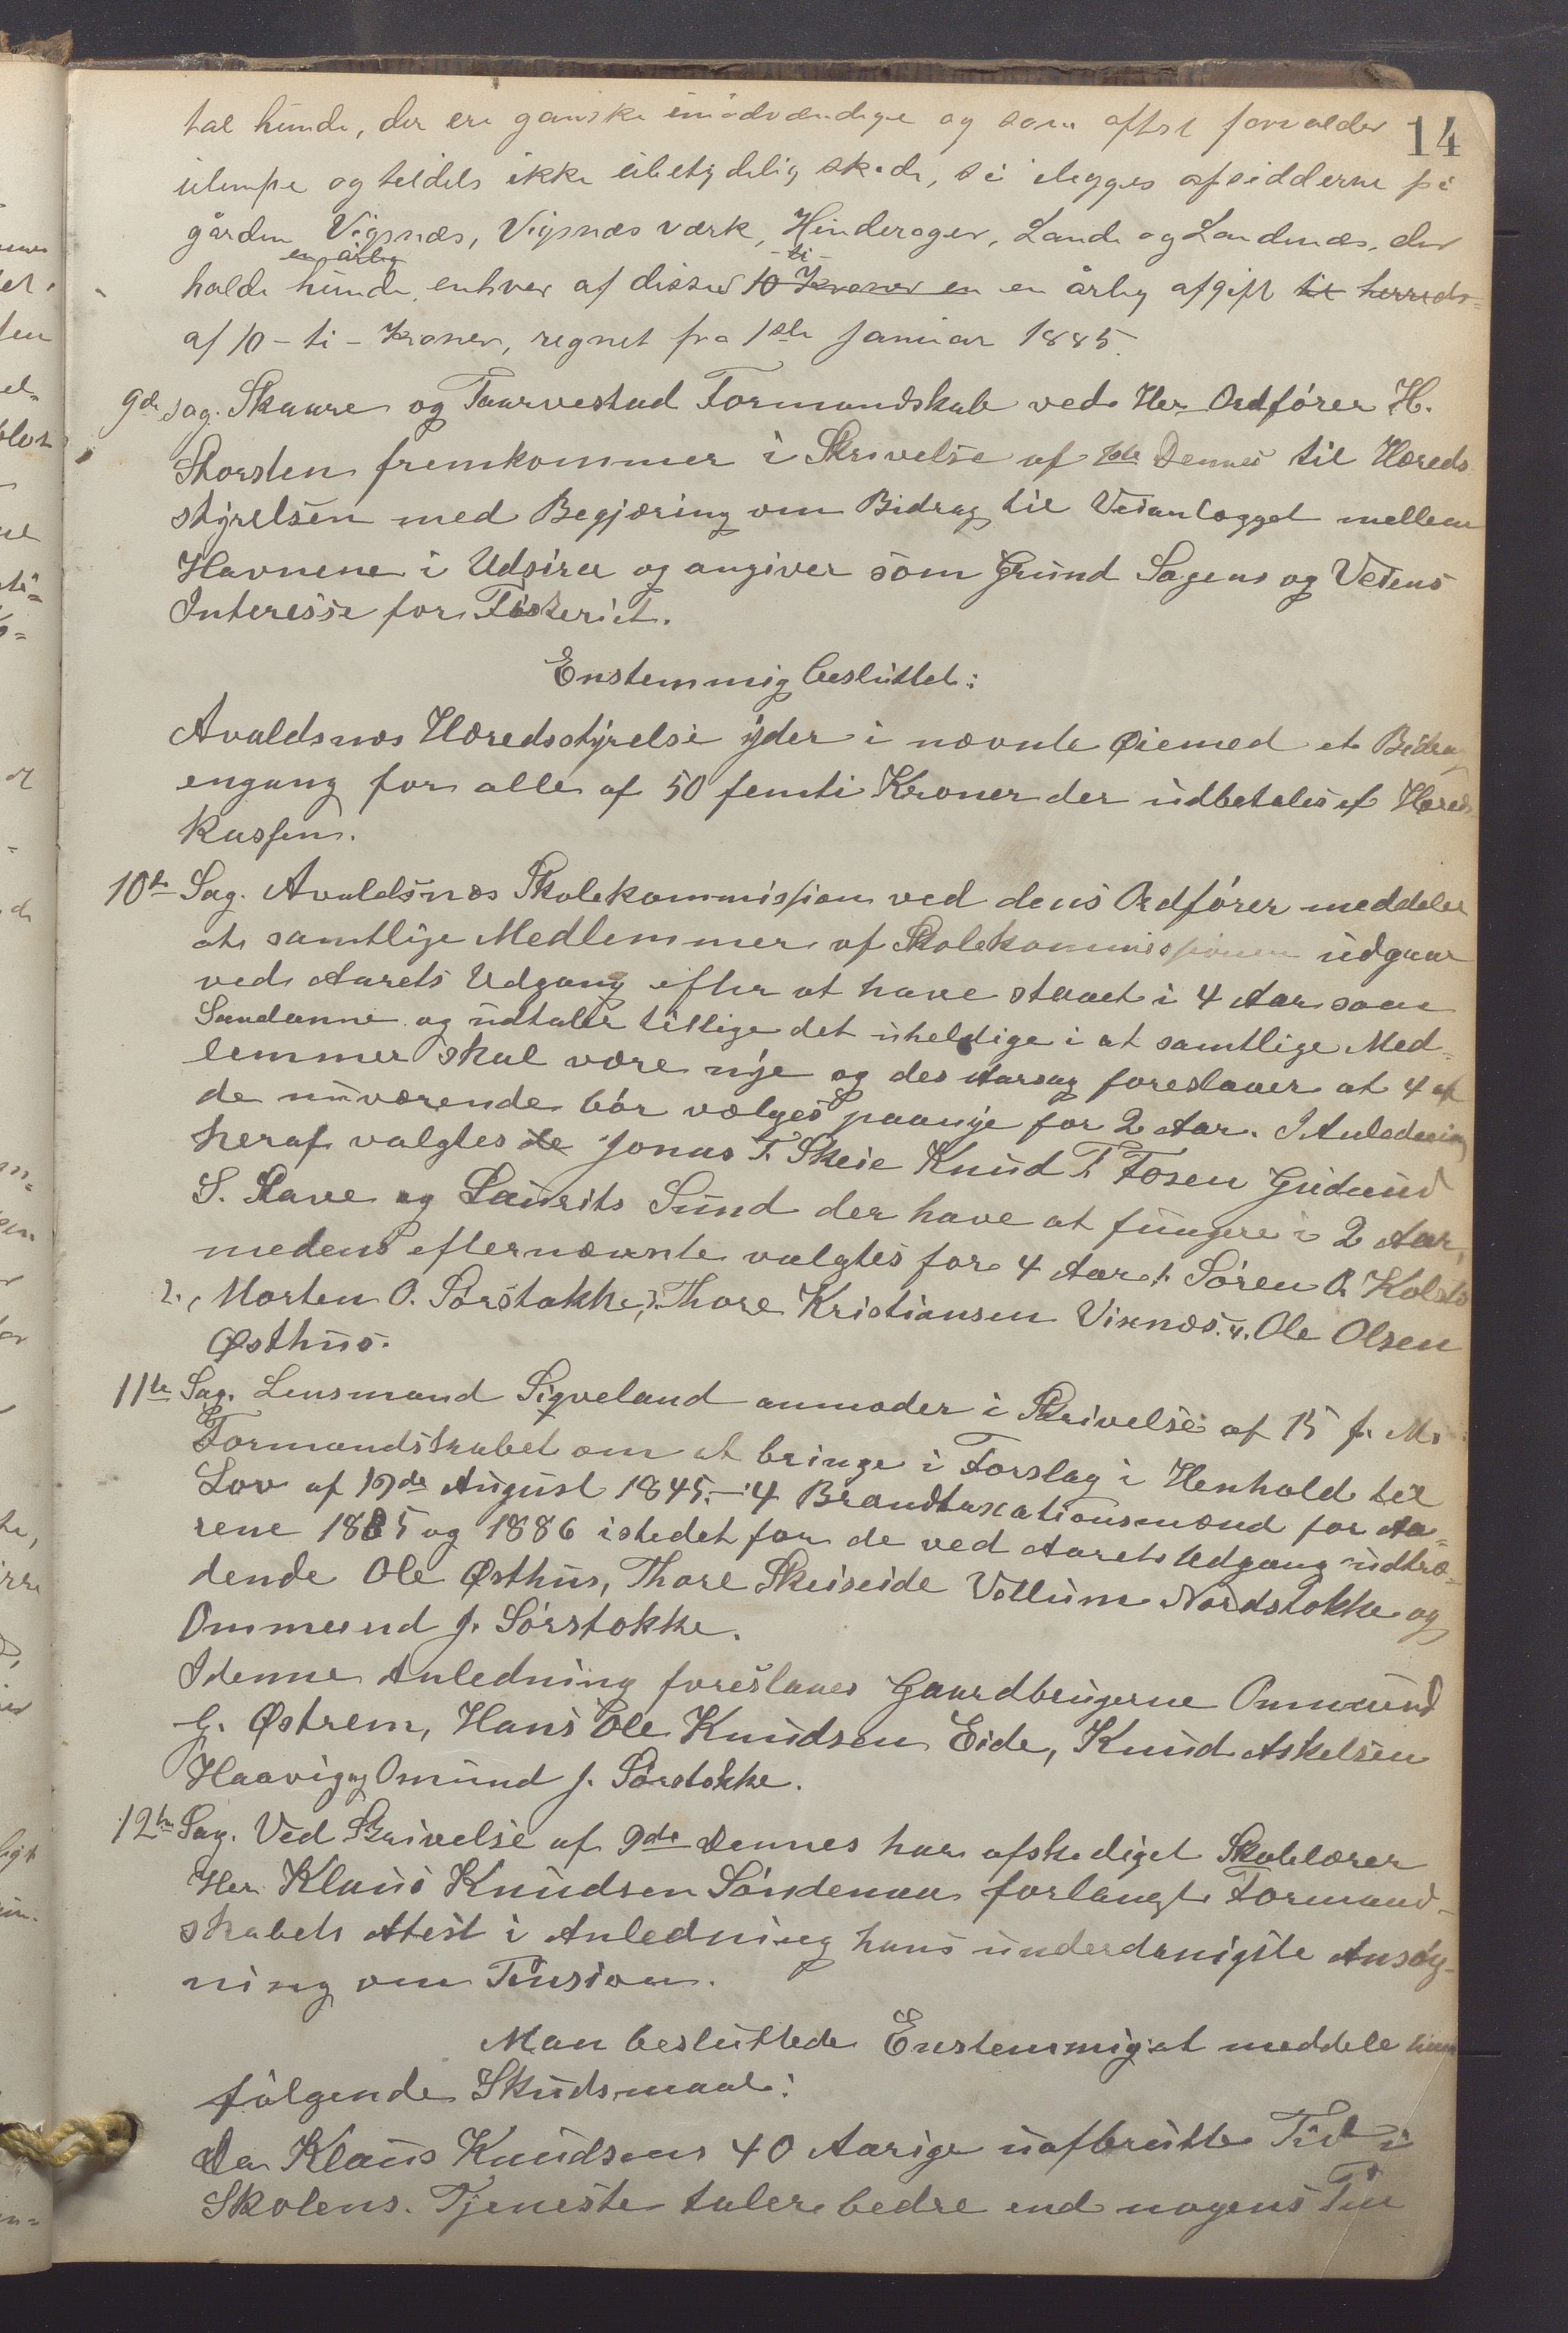 14
tal hunde, der ere ganske unödvændige og som oftest forvolder
ulempe og teldels ikke ubetydelig skade, så ilegges opsidderne på
gården Vigsnæs, Vigsnæs værk, Hinderager, Lande og Landenæs, der
en årlig - ti -
holde hunde, enhver af disse 10 Kroner en en årlig afgift til herreds=
af 10 - ti - Kroner, regnet fra 1ste Januar 1885.
9de Sag. Skaare og Taarvestad Formandskab ved Her Ordfører H.
Storsten fremkommer i Skrivelse af 1ste Dennes til Hæreds
styrelsen med Begjæring om Bidrag til Veianlægget mellem
Havnene i Udsire og angiver som Grund Sagens og Veiens
Interesse for Fiskeriet.
Enstemmig besluttet:
Avaldsnæs Hæredsstyrelse yder i nævnte Øiemed et Bidrag
engang for alle af 50 femti Kroner der udbetales af Hæreds
Kassen.
10de Sag. Avaldsnæs Skolekommission ved dens Ordfører meddeler
at samtlige Medlemmer af Skolekommissionen udgaar
ved Aarets Udgang efter at have staaet i 4 Aar som
Saadanne og udtaler tillige det uheldige i at samtlige Med=
lemmer skal være nye og des Aarsag foreslaaer at 4 af
de nuværende bør vælges paanye for 2 Aar. I Anledning
heraf valgtes de Jonas T. Skeie Knud T. Fosen Gudmund
S. Stave og Laurits Sund der have at fungere i 2 Aar,
medens efternævnte valgtes for 4 Aar 1. Søren O. Kolstø
2. Morten O. Sørstokke, 3. Thore Kristiansen Visnæs. 4. Ole Olsen
Østhus.
11te Sag. Lensmand Sigveland anmoder i Skrivelse af 15 f. M.
Formandskabet om at bringe i Forslag i Henhold til
Lov af 19de August 1845. - 4 Brandtaxationsmænd for Aa=
rene 1885 og 1886 istedet for de ved Aarets Udgang udtræ=
dende Ole Østhus, Thore Skeiseide Vellum Nordstokke og
Ommund J. Sørstokke.
I denne Anledning foreslaaes Gaardbrugerne Ommund
G. Østrem, Hans Ole Knudsen Eide, Knud Askelsen
Haavig og Omund J. Sørstokke.
12te Sag. Ved Skrivelse af 9de Dennes har afskediget Skolelærer
Her Klaus Knudsen Søndenaa forlangt Formand-
skabets Atest i Anledning hans underdanigste Ansøg-
ning om Pension.
Man besluttede Enstemmig at meddele ham
følgende Skudsmaal:
Da Klaus Knudsens 40 Aarige uafbrutte Tid i
Skolens Tjeneste taler bedre end nogens